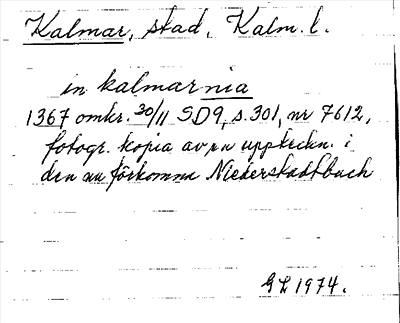 Kalmar, stad, Kalm. l.
in kalmarnia
1367 omkr. 30/11 SD9, s. 301, nr 7612,
fotogr. kopia av en uppteckn. i
den nu förkomna Niederstadtbuch
GL 1974.